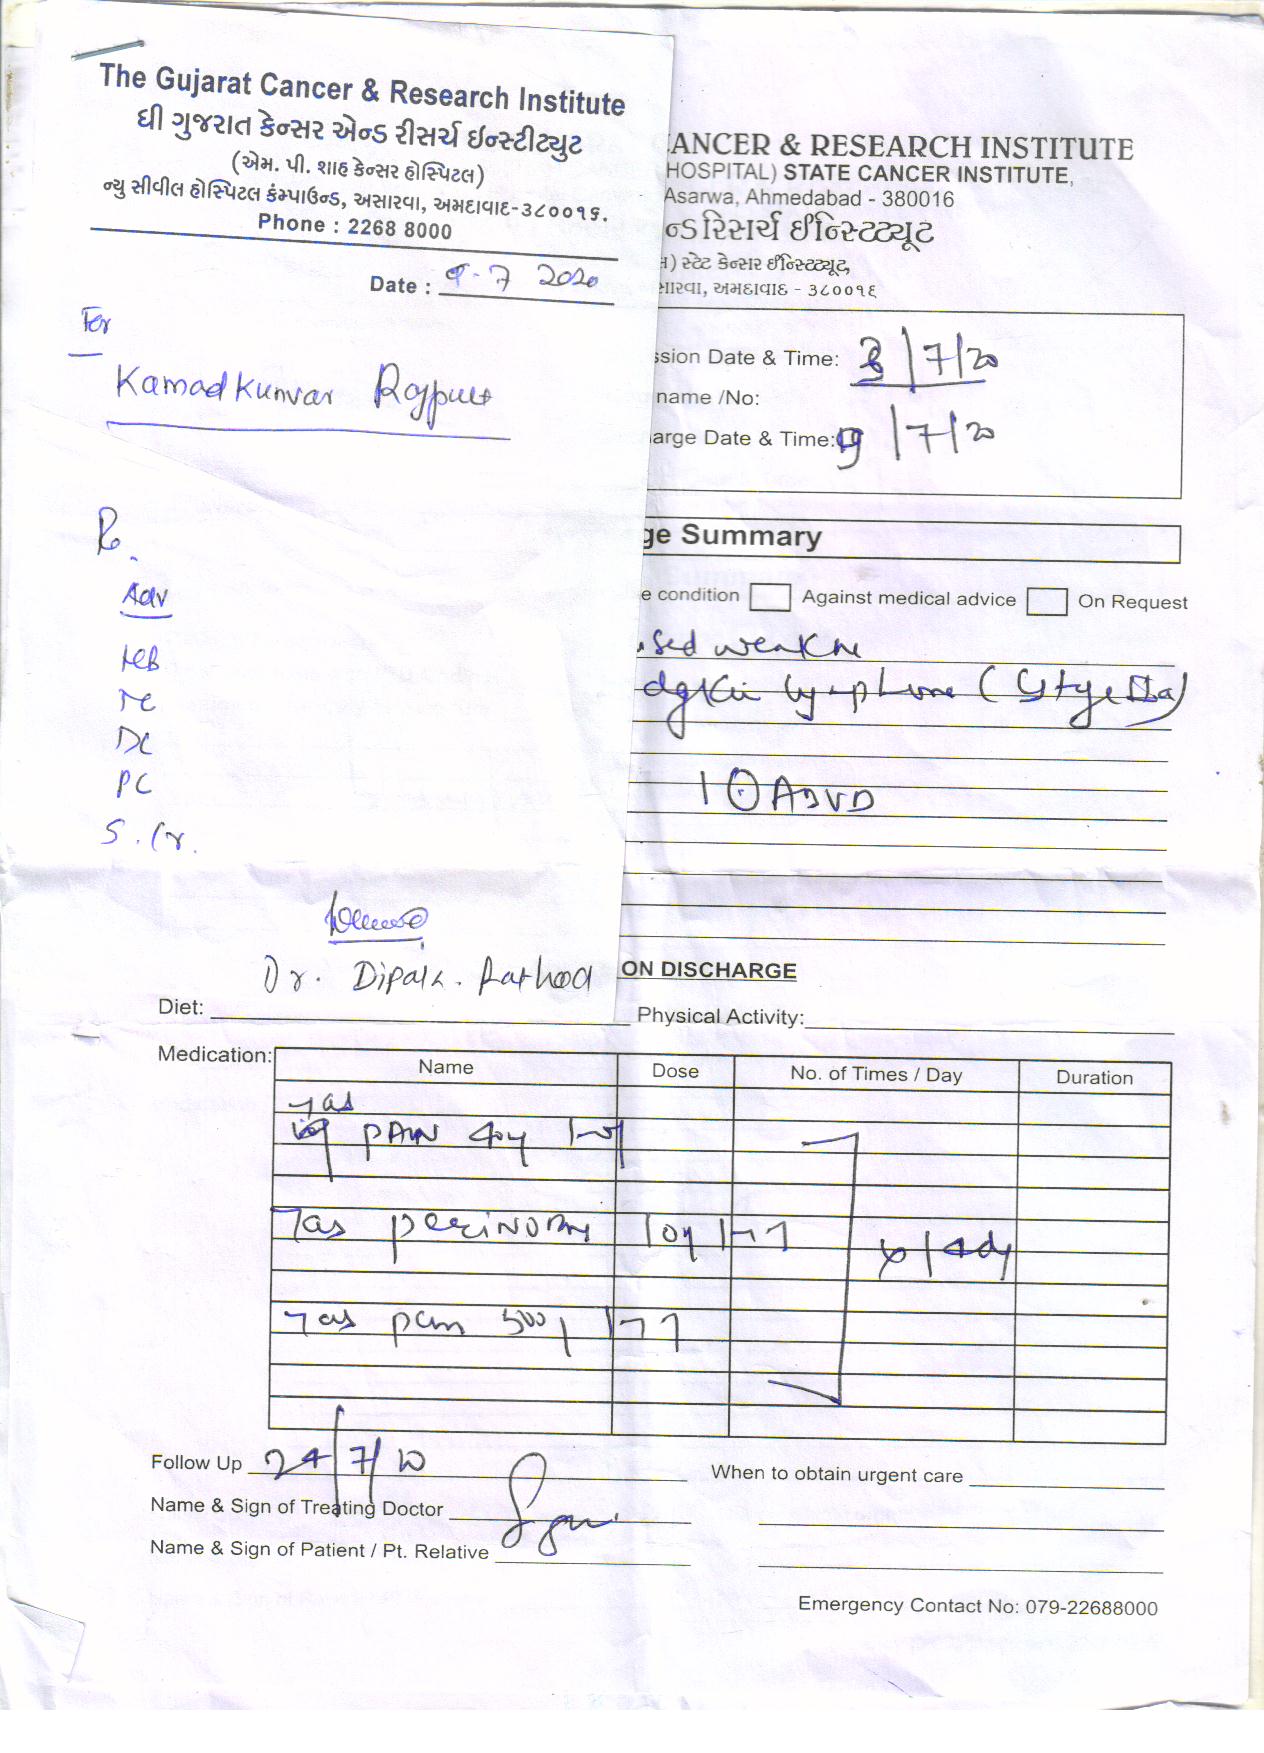 The Gujarat Cancer & Research Institute
ધી ગુજરાત કેન્સર એન્ડ રીસર્ચ ઇન્સ્ટીટ્યુટ
(એમ. પી. શાહ કેન્સર હોસ્પિટલ)
ન્યુ સીવીલ હોસ્પિટલ કંમ્પાઉન્ડ, અસારવા, અમદાવાદ-૩૮૦૦૧૬.
Phone : 2268 8000
Date : 9-7 2020
For
Kamadkunvar Rajput
R.
Adv
HB
TC
DC
PC
S. Cr.
Dr. Dipak. Rathod
ANCER & RESEARCH INSTITUTE
HOSPITAL) STATE CANCER INSTITUTE,
Asarwa, Ahmedabad - 380016
ન્ડ રિસર્ચ ઈન્સ્ટિટ્યૂટ
) સ્ટેટ કેન્સર ઈન્સ્ટિટ્યૂટ,
ારવા, અમદાવાદ - ૩૮૦૦૧૬
ssion Date & Time: 3/7/20
name /No:
arge Date & Time: 9/7/20
ge Summary
e condition Against medical advice On Request
sed weakne
dgkin lymphoma (Stage IIa)
1 ABVD
ON DISCHARGE
Diet: Physical Activity:
Medication: Name Dose No. of Times / Day Duration
Tab
PAN 40
Tab perinorm 10 1-1-1 x 14dy
Tab pcm 500 1-1-1
Follow Up 24/7/20 When to obtain urgent care
Name & Sign of Treating Doctor
Name & Sign of Patient / Pt. Relative
Emergency Contact No: 079-22688000